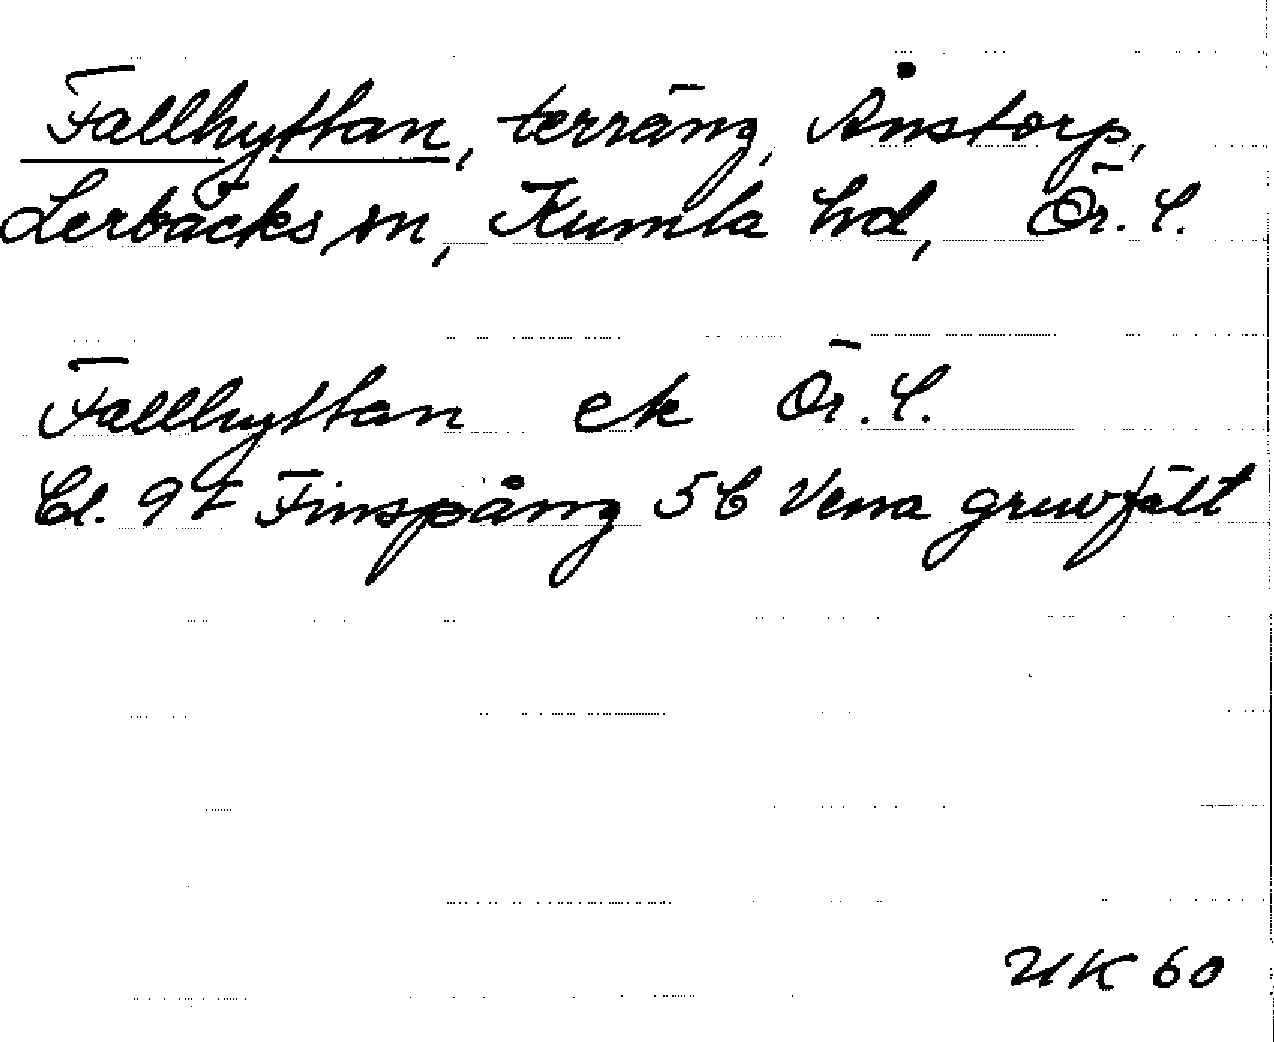 Fallhyttan, terräng, Ånstorp,
Lerbäcks sn, Kumla hd, Ör. l.
Fallhyttan ek Ör. l.
Bl. 9F Finspång 5C Vena gruvfält
UK 60